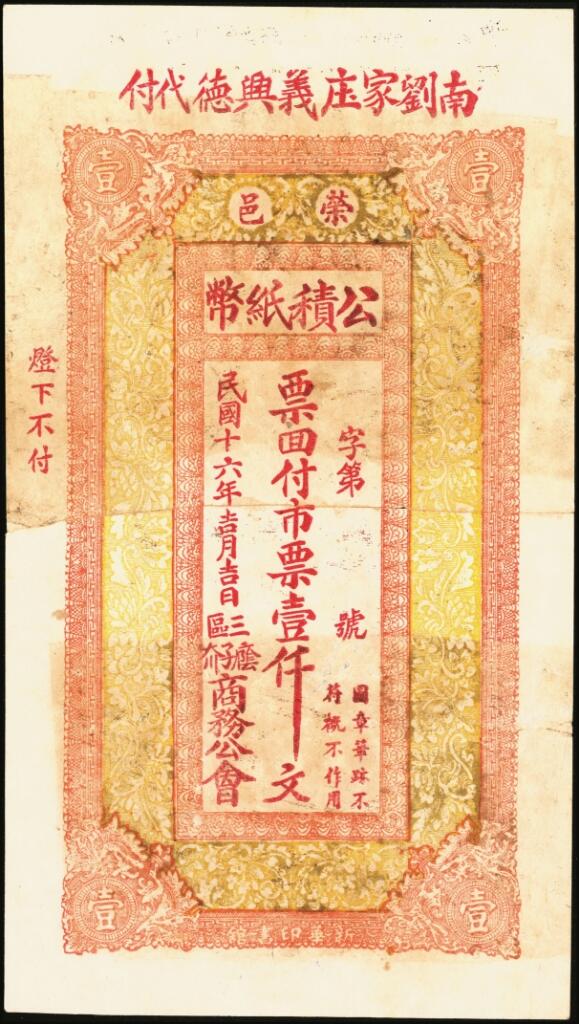 南劉家庄義興德代付
壹
壹
榮邑
公積紙幣
字第 號
圖章筆跡不
符概不作用
票回付市票壹仟文
民國十六年吉月吉日
三區
商務公會
燈下不付
壹
壹
新華印書館